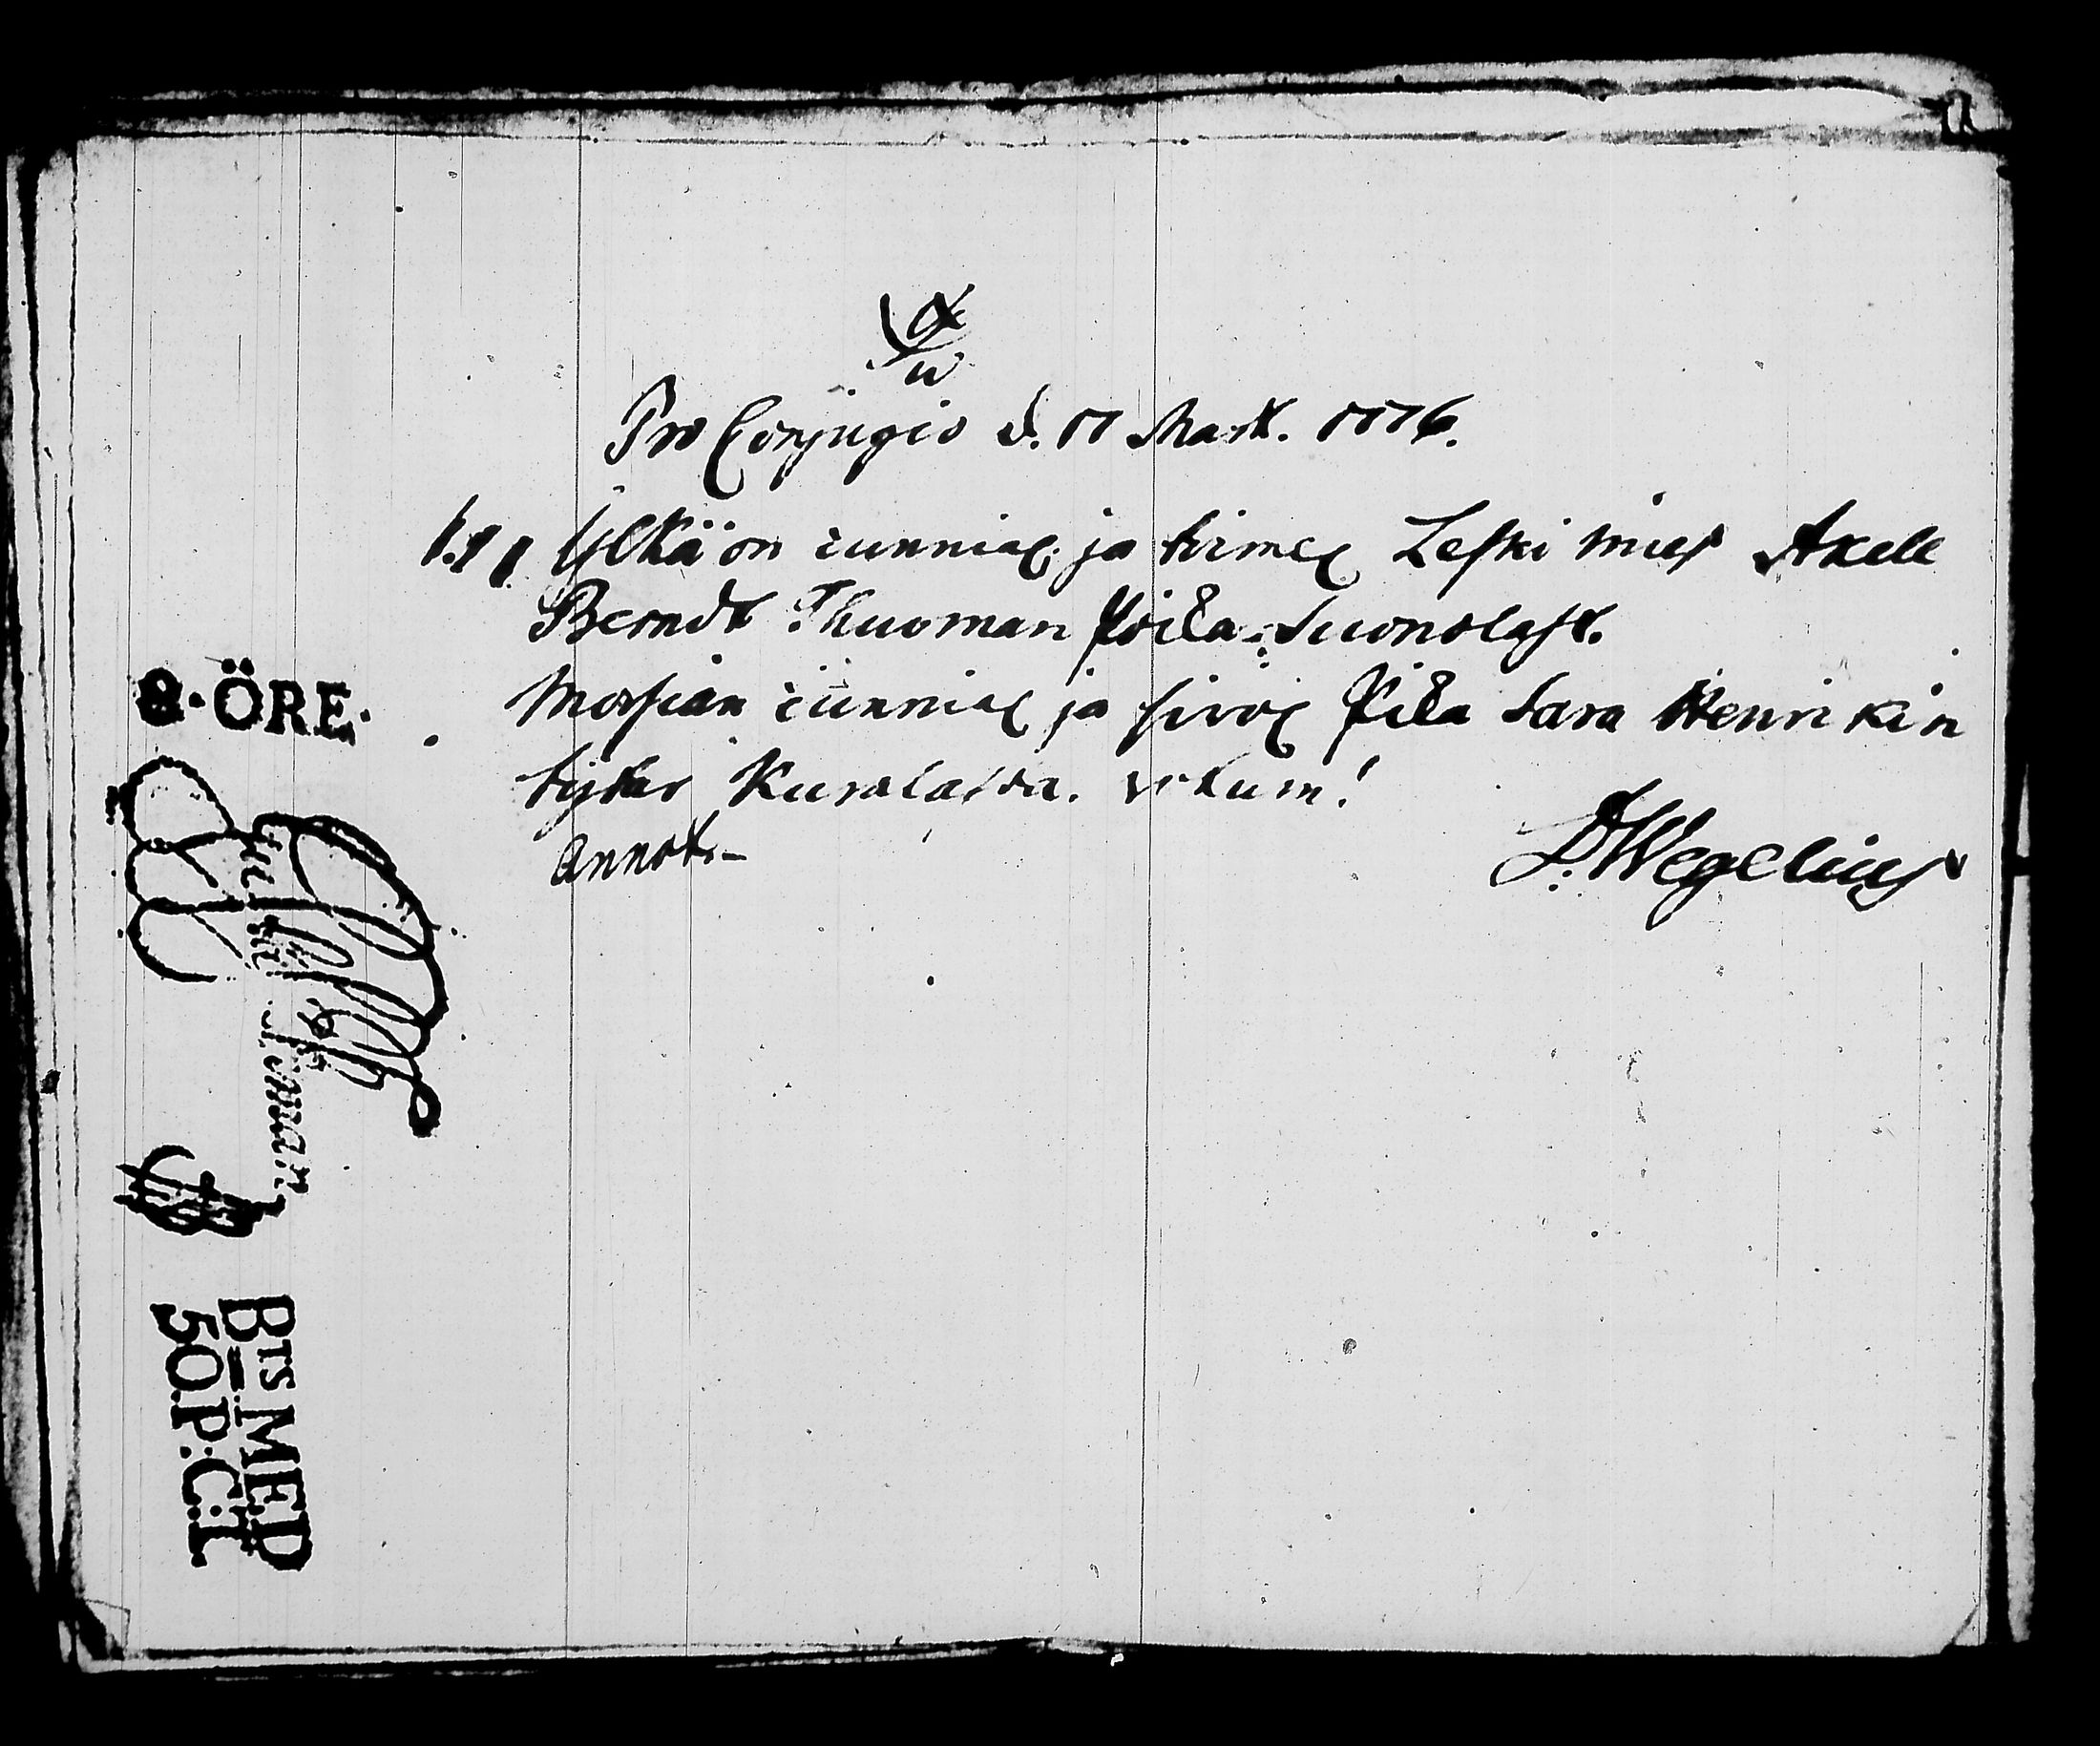 α
ω
Pro Conjugio d. 17 Mart. 1776.
Ylkä on cunniax ja toimex Leski mies Axell
Berndt Thuoman Poika Suonolast.
Morsian cunniax ja sivox Pika Sara Henrikin
tytär Kuralasta. votum!
Annot.
D. Wegelius
8·ÖRE·
BTS MED
50.P:C:T.